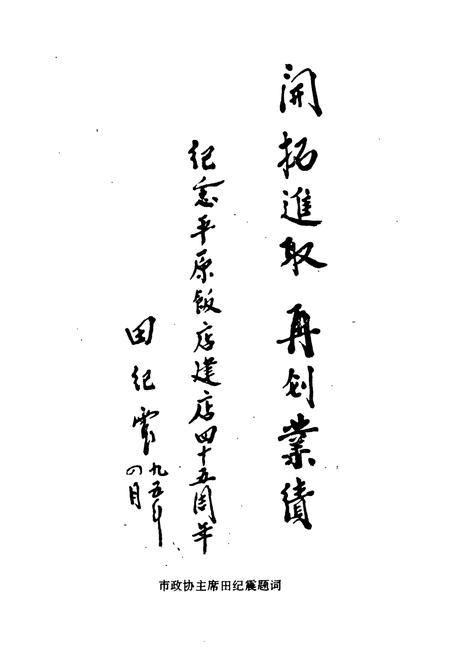 開拓進取 再创業績
纪念平原飯店建店四十五周年
田纪震
九五年
四月
市政协主席田纪震题词